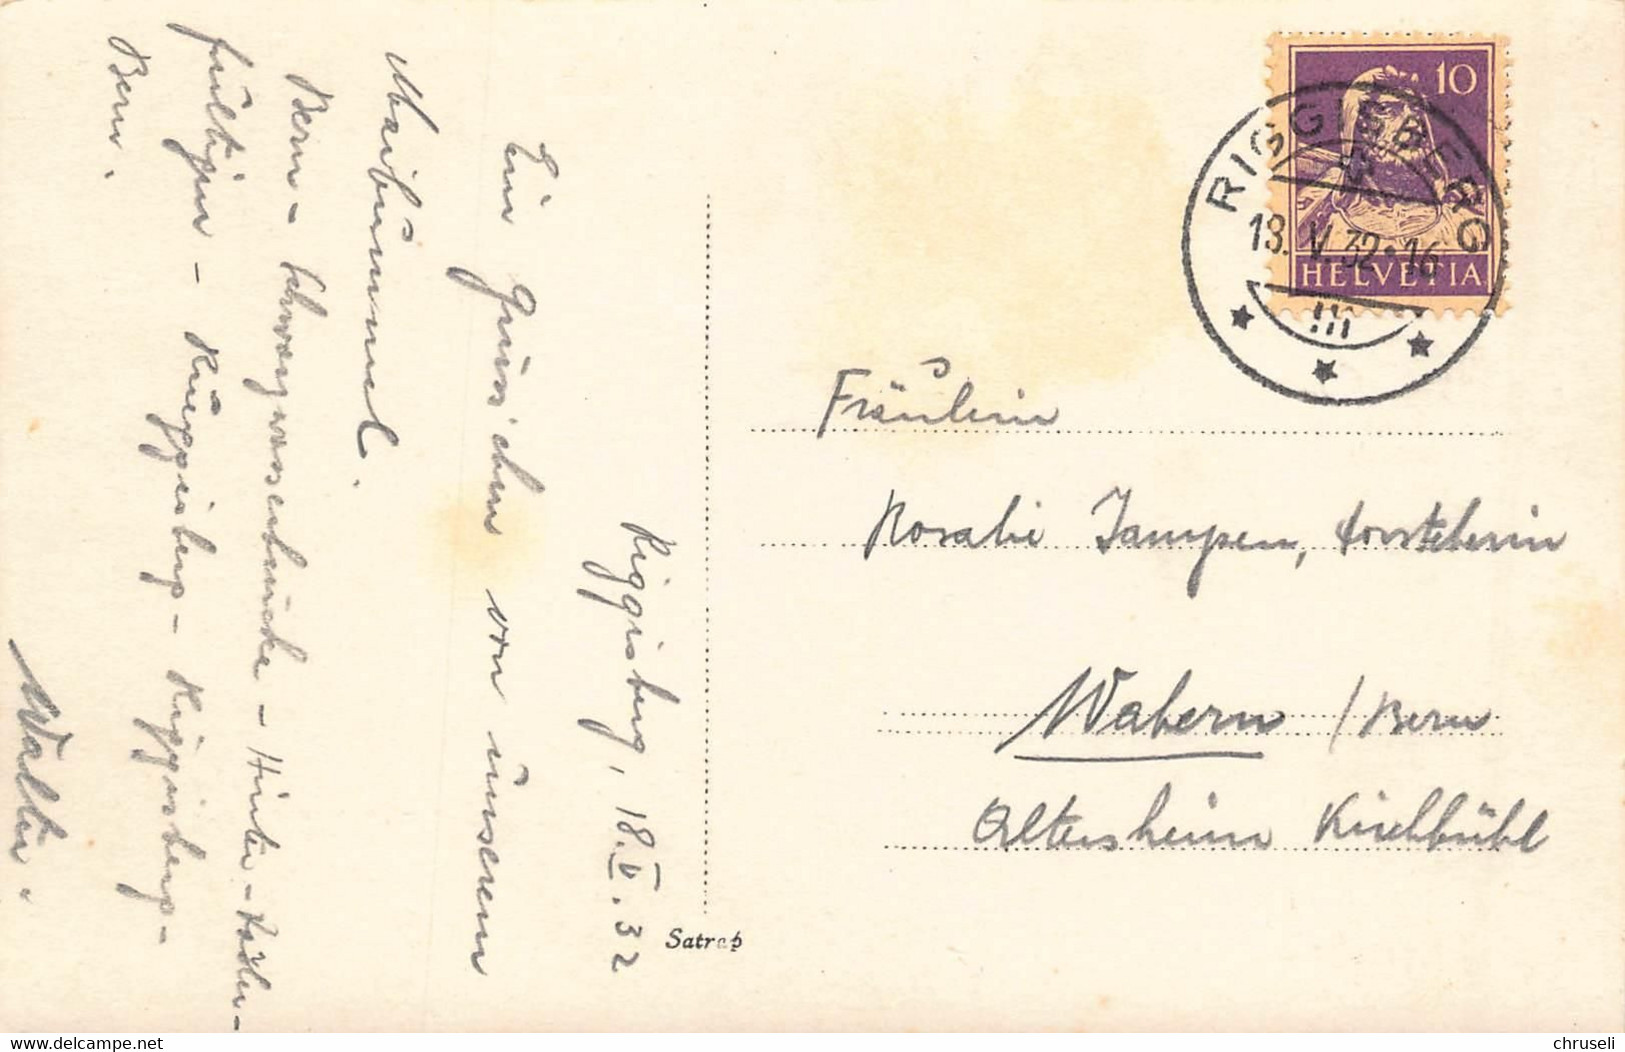 Riggisberg, 18.V.32
Ein Grüss'chen von unserem
Maibummel.
Bern - Schwarzwasserbrücke - Hinter-
fultigen - Rüeggisberg - Riggisberg -
Bern.
Walter.
Satrap
10
HELVETIA
RIGGISBERG
18.V.32-16
Fräulein
Rosalie Jampen, Vorsteherin
Wabern / Bern
Altersheim Kirchbühl
delcampe.net
chruseli